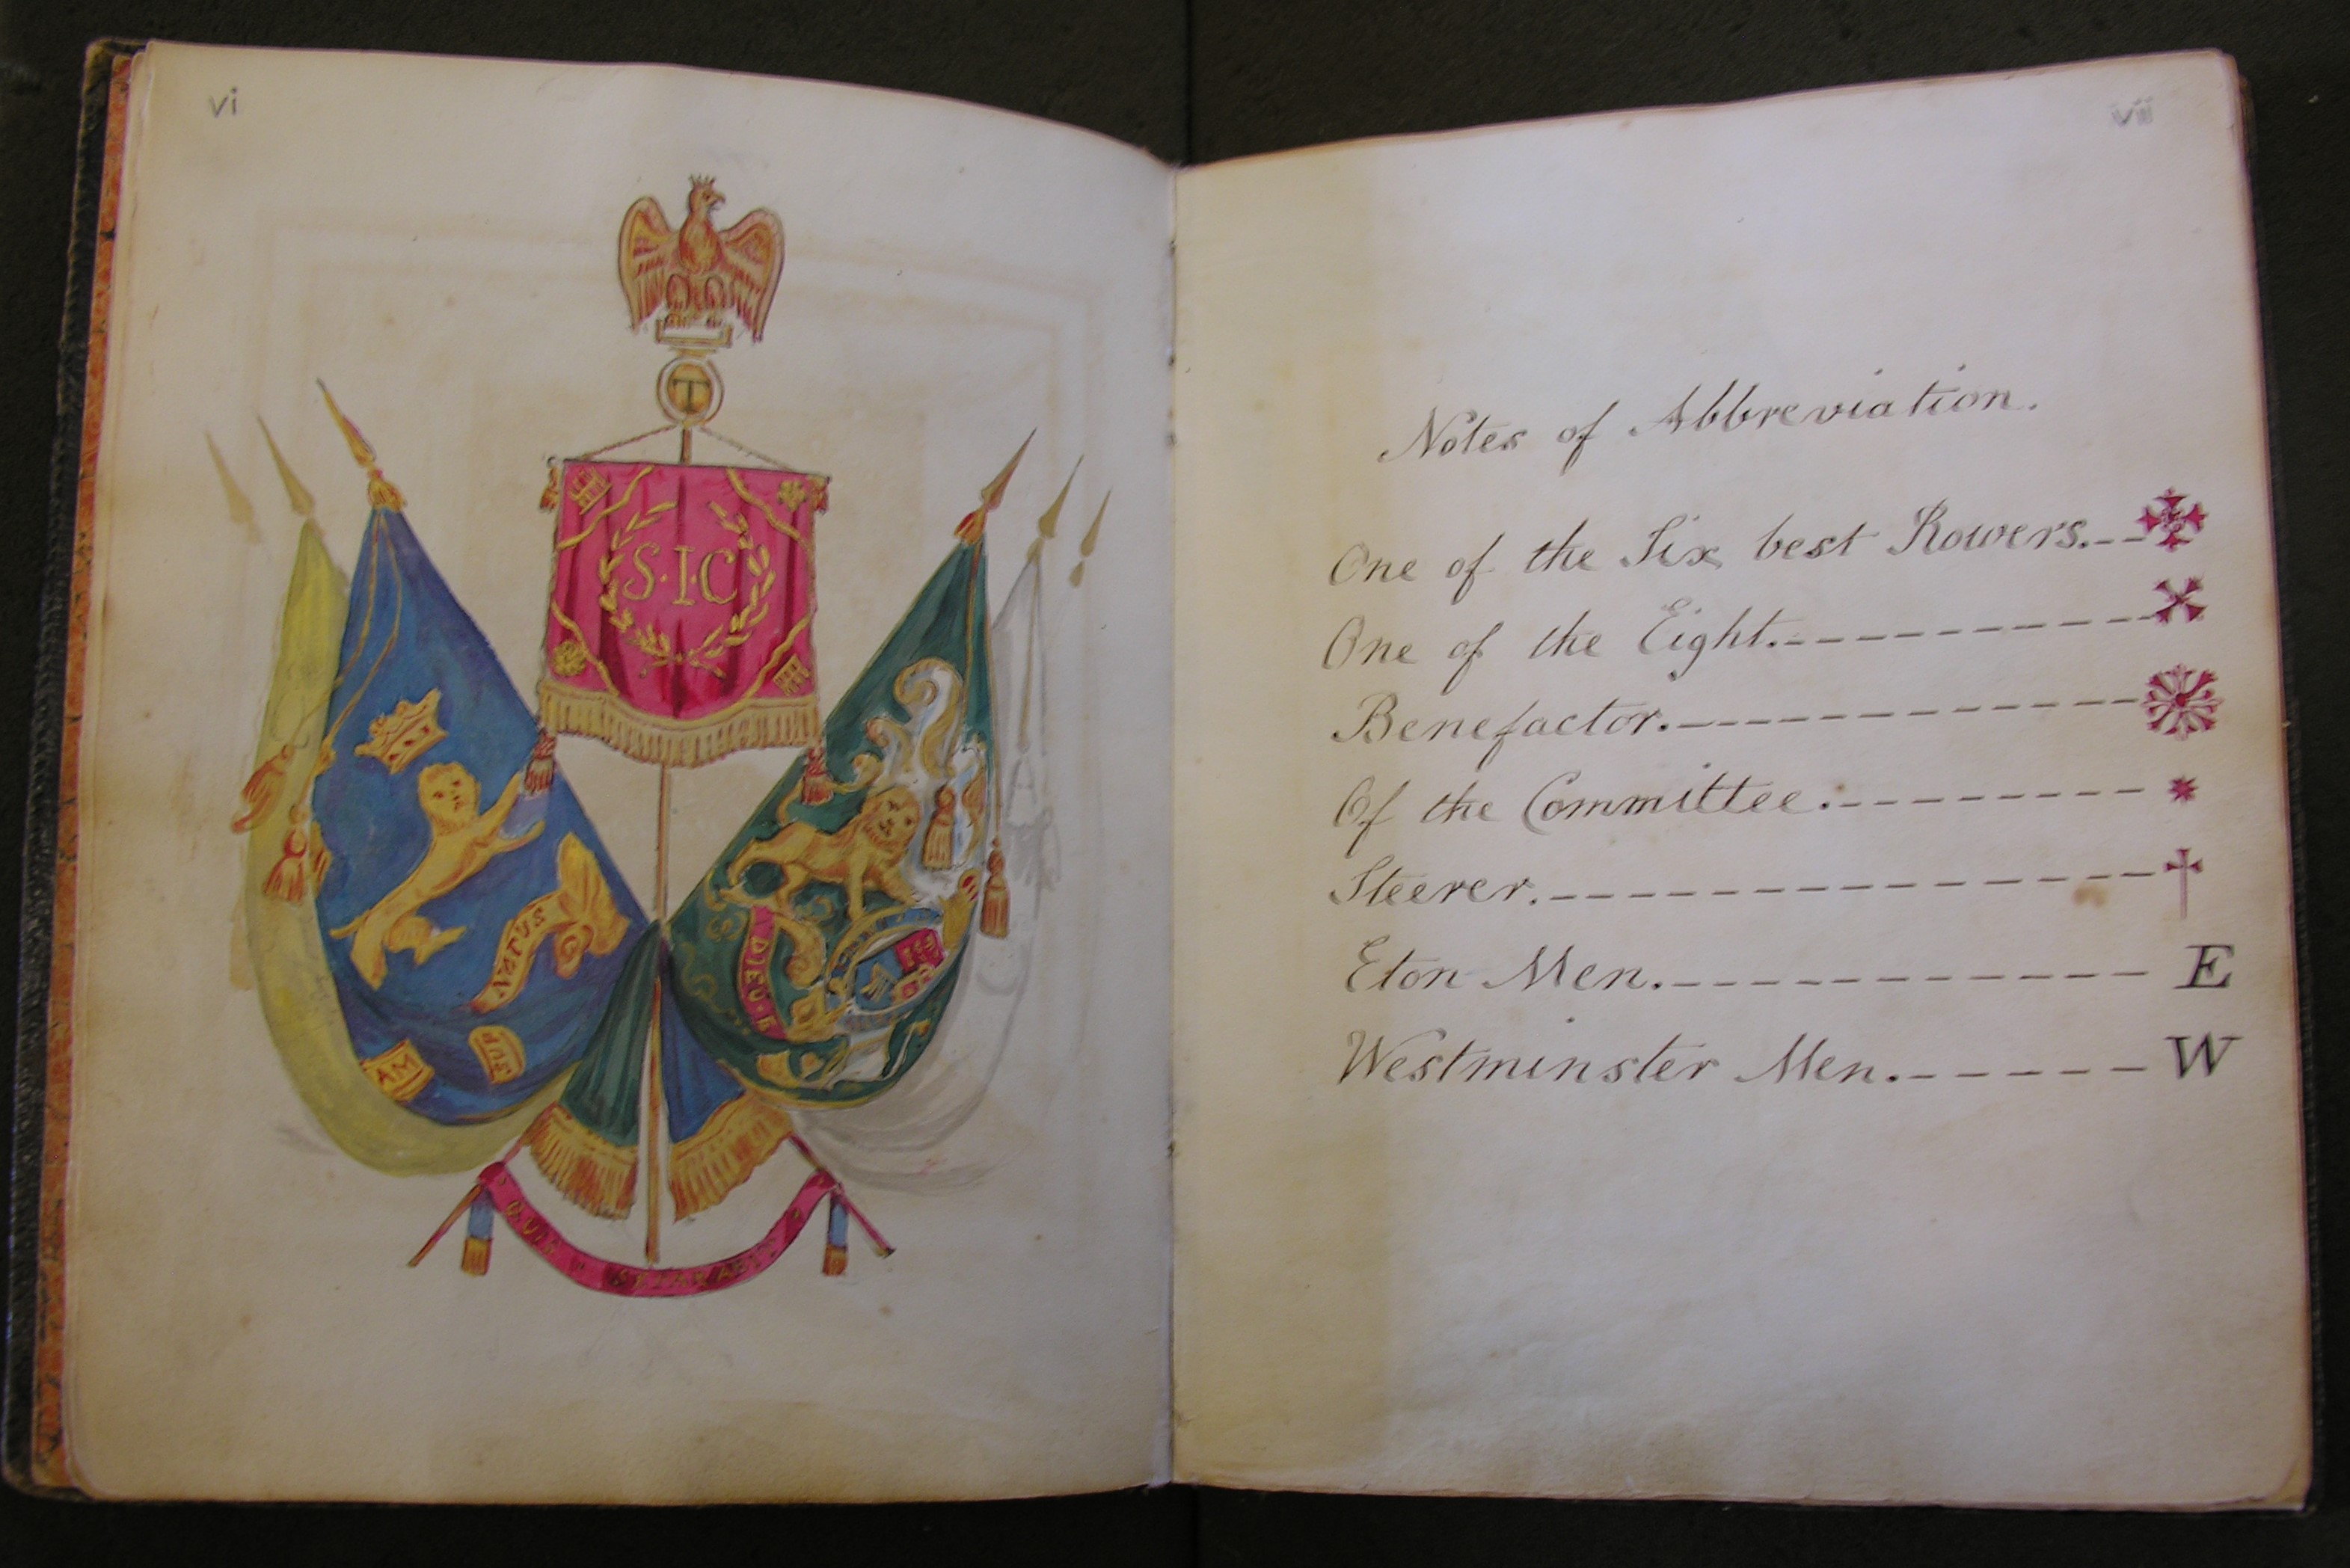 vi
T
S.I.C
NATUS
AM
SUB
DIEU.E
QUIS SEPARABIT
vii
Notes of Abbreviation.
One of the Six best Rowers.
One of the Eight.
Benefactor.
Of the Committee.
Steerer.
Eton Men. E
Westminster Men. W